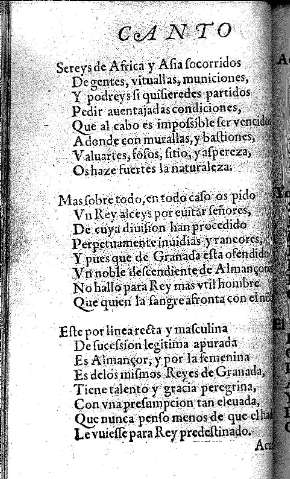 CANTO
Sereys de Africa y Asia socorridos
De gentes, vituallas, municiones,
Y podreys si quisieredes partidos
Pedir auentajadas condiciones,
Que al cabo es impossible ser vencidos
Adonde con murallas, y bastiones,
Valuartes, fosos, sitio, y aspereza,
Os haze fuertes la naturaleza.
Mas sobre todo, en todo caso os pido
Vn Rey alceys por euitar señores,
De cuya diuision han procedido
Perpetuamente inuidias y rancores,
Y pues que de Granada esta ofendido
Vn noble descendiente de Almançor
No hallo para Rey mas vtil hombre
Que quien la sangre afronta con el
Este por linea recta y masculina
De sucession legitima apurada
Es Almançor, y por la femenina
Es delos mismos Reyes de Granada,
Tiene talento y gracia peregrina,
Con vna presumpcion tan eleuada,
Que nunca penso menos de que el
Le vuiesse para Rey predestinado.